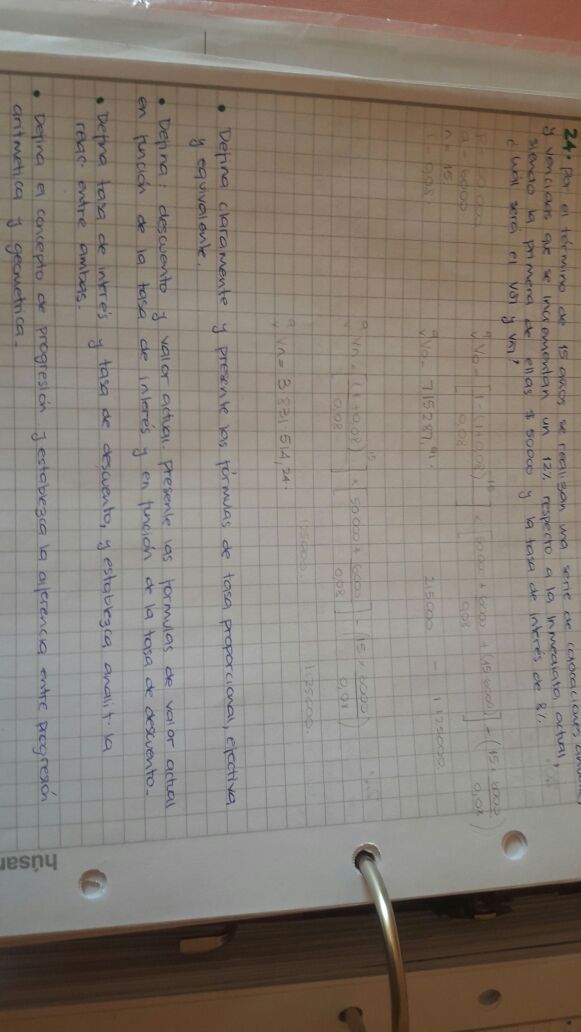 24. Por el término de 15 años se realizan una serie de colocaciones
y vencidas que se incrementan un 12% respecto a la inmediata actual,
siendo la primera de ellas $ 50000 y la tasa de interés de 8%.
¿Cuál será el Vo y Vn?
a = 6000
n = 15
0,08
Vo = 715287,
215000 - 1125000
Vn = [(1+0,08)^15 / 0,08] × [50.000 + 6000 / 0,08] - (15 × 6000 / 0,08)
Vn = 3 871.514,24.
1125000.
• Defina claramente y presente las fórmulas de tasa proporcional, efectiva
y equivalente.
• Defina: descuento y valor actual. Presente las fórmulas de valor actual
en función de la tasa de interés y en función de la tasa de descuento.
• Defina tasa de interés y tasa de descuento, y establezca analit. la
relac. entre ambas.
• Defina el concepto de progresión y establezca la diferencia entre progresión
aritmética y geométrica.
húsar